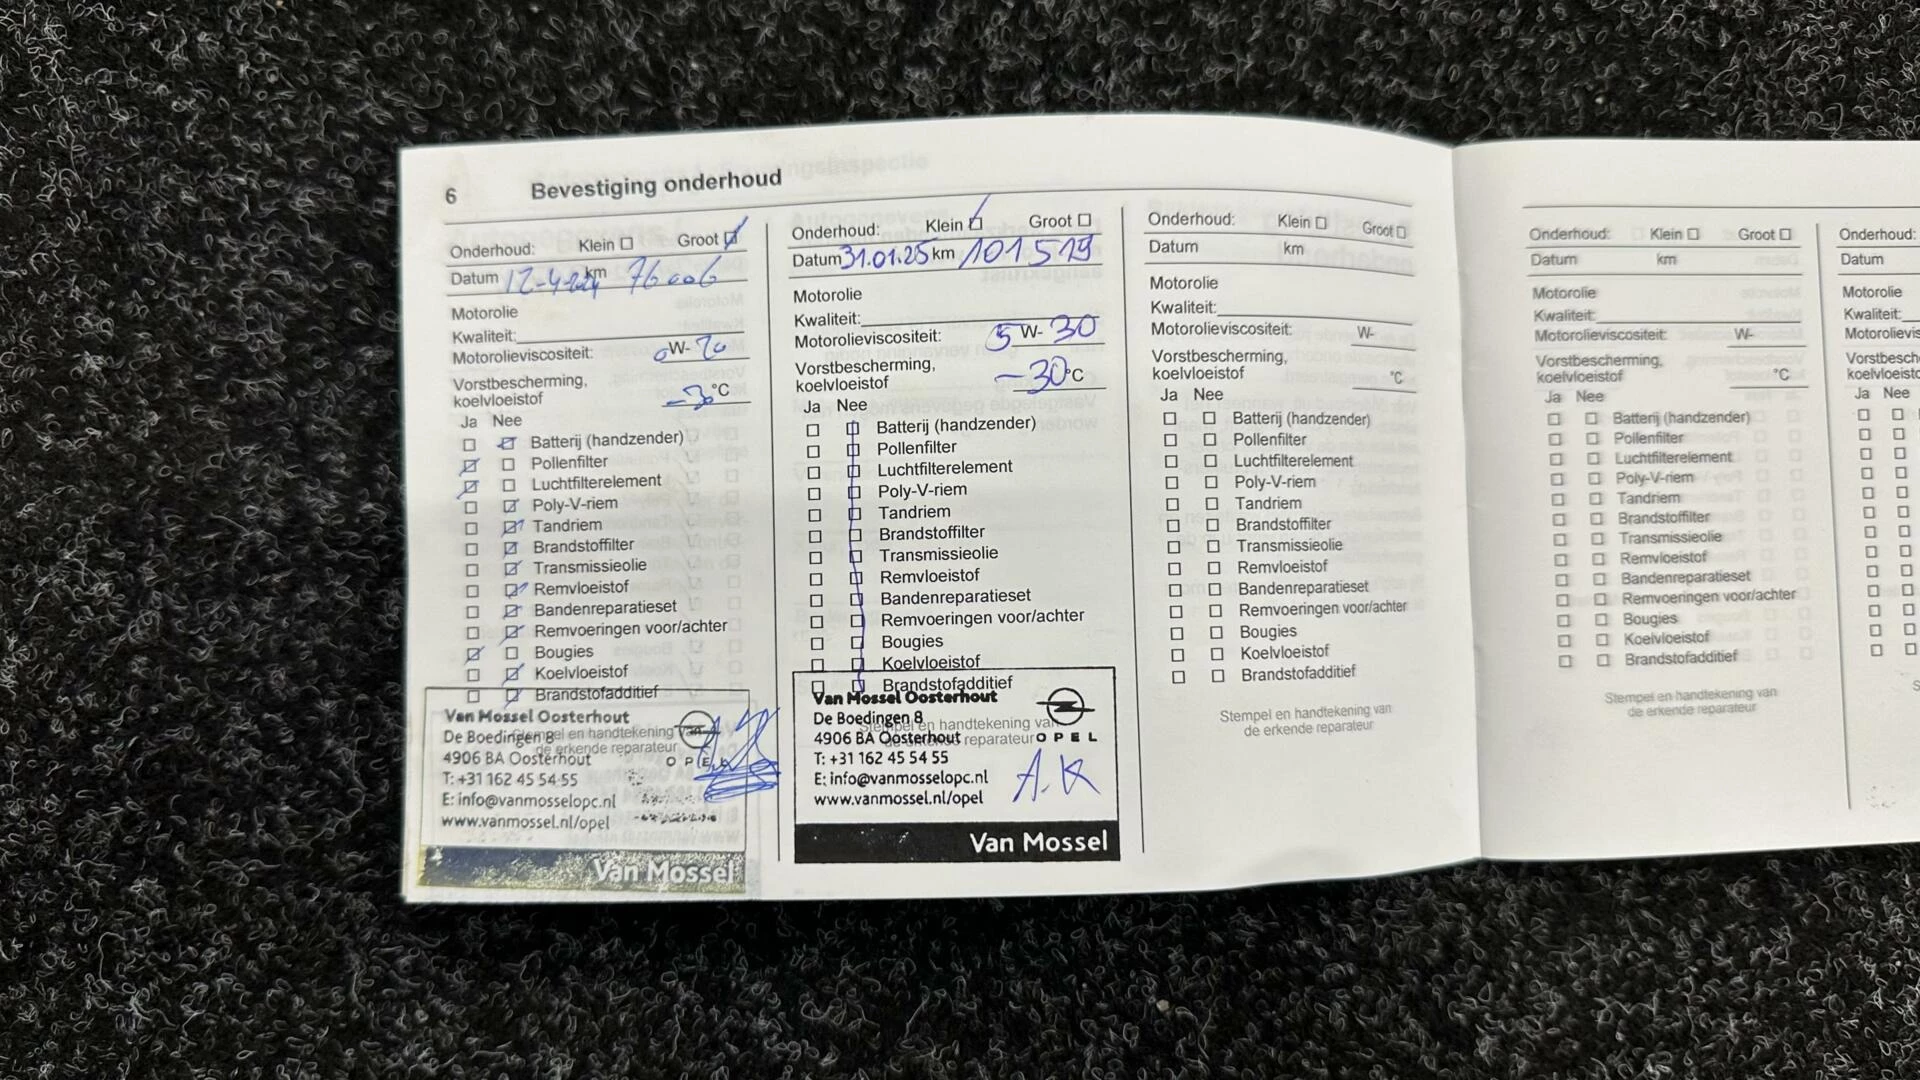 6 Bevestiging onderhoud
Onderhoud: Klein Groot
Datum 12-4-2024 km 76006
Motorolie
Kwaliteit:
Motorolieviscositeit: 0W-20
Vorstbescherming,
koelvloeistof -30°C
Ja Nee
Batterij (handzender)
Pollenfilter
Luchtfilterelement
Poly-V-riem
Tandriem
Brandstoffilter
Transmissieolie
Remvloeistof
Bandenreparatieset
Remvoeringen voor/achter
Bougies
Koelvloeistof
Brandstofadditief
Stempel en handtekening van
de erkende reparateur
Van Mossel Oosterhout
De Boedingen 8
4906 BA Oosterhout
T: +31 162 45 54 55
E: info@vanmosselopc.nl
www.vanmossel.nl/opel
OPEL
Van Mossel
Onderhoud: Klein Groot
Datum 31.01.25 km 101519
Motorolie
Kwaliteit:
Motorolieviscositeit: 5W-30
Vorstbescherming,
koelvloeistof -30°C
Ja Nee
Batterij (handzender)
Pollenfilter
Luchtfilterelement
Poly-V-riem
Tandriem
Brandstoffilter
Transmissieolie
Remvloeistof
Bandenreparatieset
Remvoeringen voor/achter
Bougies
Koelvloeistof
Brandstofadditief
Stempel en handtekening van
de erkende reparateur
Van Mossel Oosterhout
De Boedingen 8
4906 BA Oosterhout
T: +31 162 45 54 55
E: info@vanmosselopc.nl
www.vanmossel.nl/opel
OPEL
A.K
Van Mossel
Onderhoud: Klein Groot
Datum km
Motorolie
Kwaliteit:
Motorolieviscositeit: W-
Vorstbescherming,
koelvloeistof °C
Ja Nee
Batterij (handzender)
Pollenfilter
Luchtfilterelement
Poly-V-riem
Tandriem
Brandstoffilter
Transmissieolie
Remvloeistof
Bandenreparatieset
Remvoeringen voor/achter
Bougies
Koelvloeistof
Brandstofadditief
Stempel en handtekening van
de erkende reparateur
Onderhoud: Klein Groot
Datum km
Motorolie
Kwaliteit:
Motorolieviscositeit: W-
Vorstbescherming,
koelvloeistof °C
Ja Nee
Batterij (handzender)
Pollenfilter
Luchtfilterelement
Poly-V-riem
Tandriem
Brandstoffilter
Transmissieolie
Remvloeistof
Bandenreparatieset
Remvoeringen voor/achter
Bougies
Koelvloeistof
Brandstofadditief
Stempel en handtekening van
de erkende reparateur
Onderhoud:
Datum
Motorolie
Kwaliteit:
Motorolievis
Vorstbesche
koelvloeisto
Ja Nee